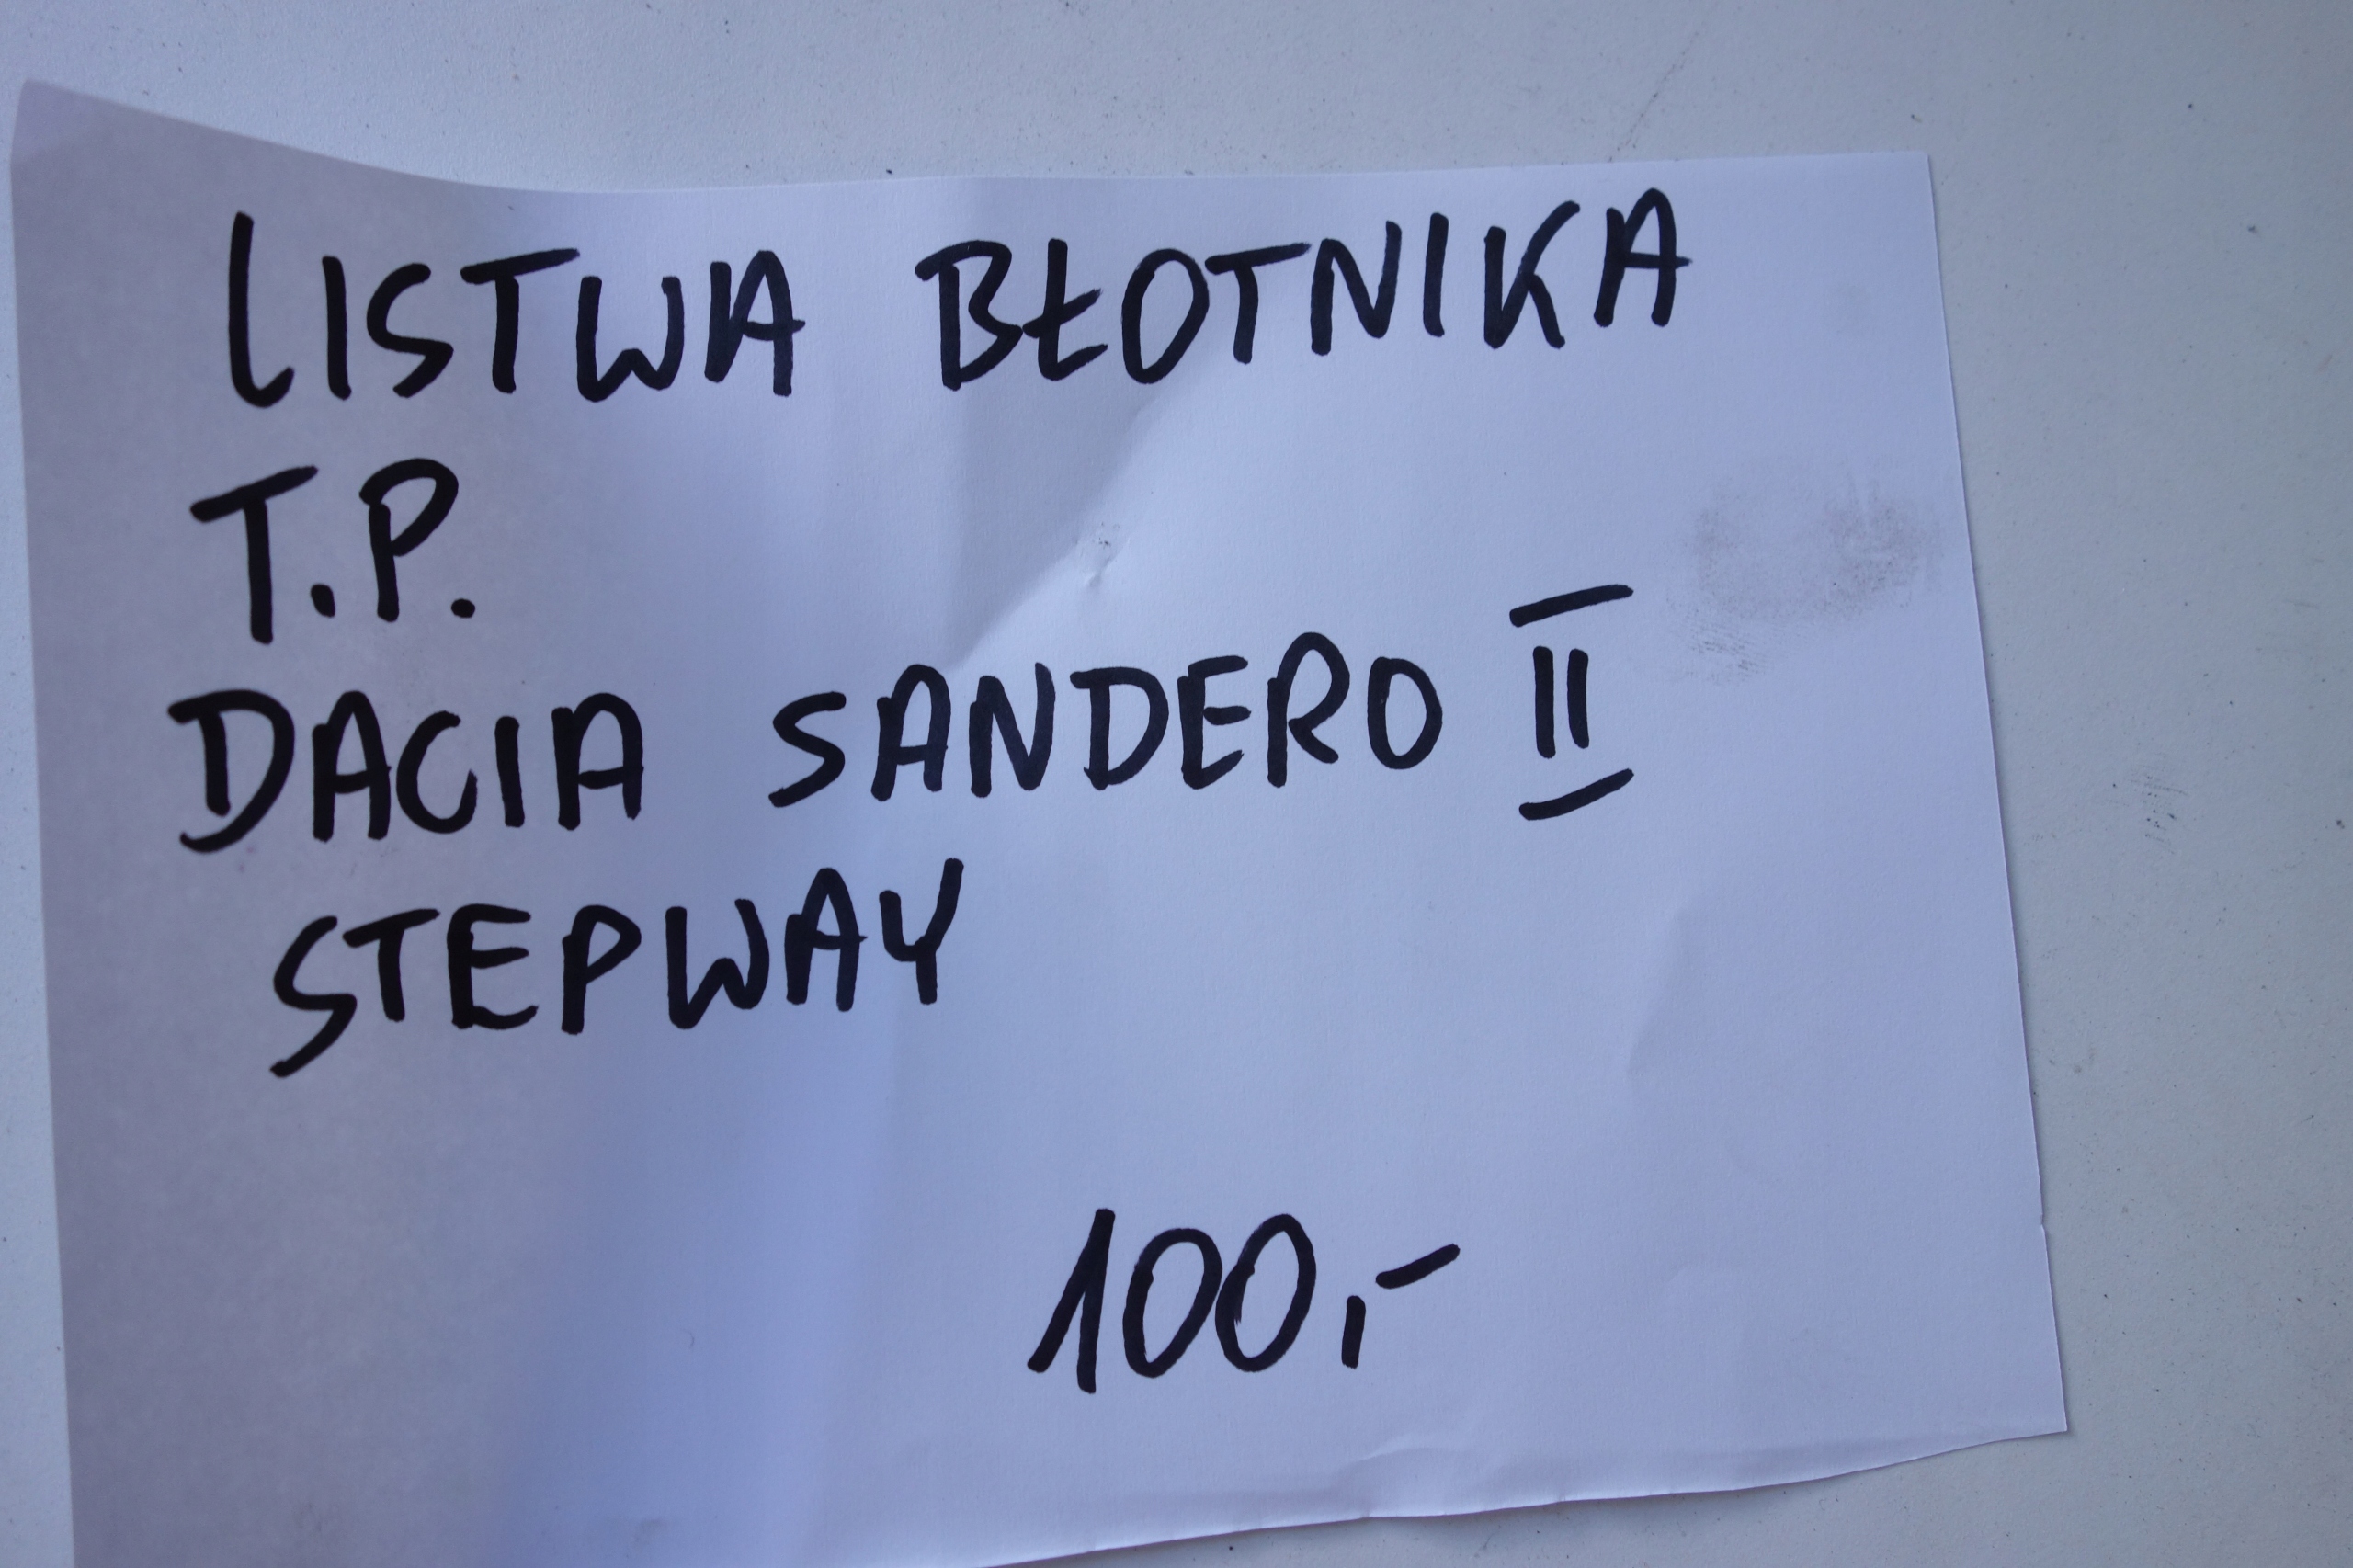 LISTWA BŁOTNIKA
T.P.
DACIA SANDERO II
STEPWAY
100,-